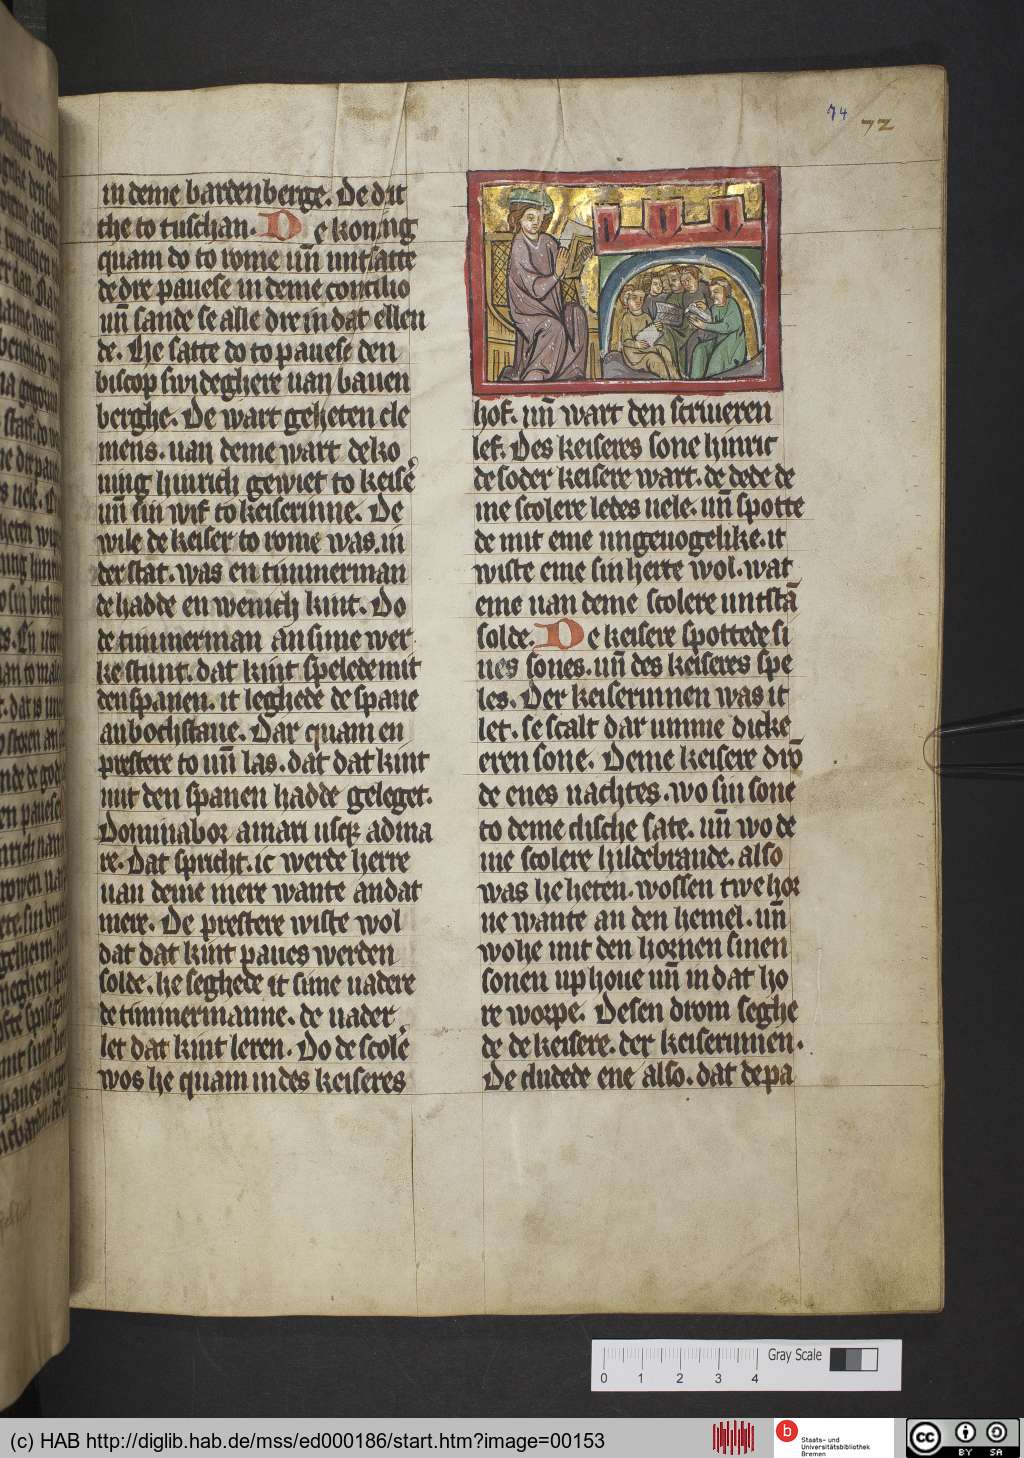 74 72
in deme bardenberge. De drit
the to tuschan. De koning
quam do to rome un̄ untsatte
de dre pauese in deme concilio
un̄ sande se alle dre in dat ellen
de. He satte do to pauese den
biscop swideghere uan bauen
berghe. De wart geheten cle
mens. uan deme wart de ko
ning hinrich gewiet to keiser
un̄ sin wif to keiserinne. De
wile de keiser to rome was. in
der stat. was en timmerman
de hadde en wenich kint. Do
de timmerman an sime wer
ke stunt. dat kint spelede mit
den spanen. it leghede de spane
an bochstaue. Dar quam en
prestere to un̄ las. dat dat kint
mit den spanen hadde geleget.
Dominabor a mari usq ad ma
re. Dat spricht. ic werde herre
uan deme mere wante an dat
mere. De prestere wiste wol
dat dat kint paues werden
solde. he seghede it sime uadere
de timmermanne. de uader
let dat kint leren. Do de scole
wos he quam in des keiseres
hof. un̄ wart den scriueren
lef. Des keiseres sone hinric
de soder keisere wart. de dede de
me scolere ledes uele. un̄ spotte
de mit eme ungeuogelike. it
wiste eme sin herte wol. wat
eme uan deme scolere untstā
solde. De keisere spottede si
nes sones. un̄ des keiseres spe
les. Der keiserinnen was it
let. se scalt dar umme dicke
eren sone. Deme keisere drō
de enes nachtes. wo sin sone
to deme dische sate. un̄ wo de
me scolere hildebrande. also
was he heten. wossen twe hor
ne wante an den hemel. un̄
wo he mit den hornen sinen
sonen up houe un̄ in dat ho
re worpe. Desen drom seghe
de de keisere. der keiserinnen.
De dudede ene also. dat de pa
Gray Scale
0 1 2 3 4
(c) HAB http://diglib.hab.de/mss/ed000186/start.htm?image=00153
b
Staats- und
Universitätsbibliothek
Bremen
cc
BY SA